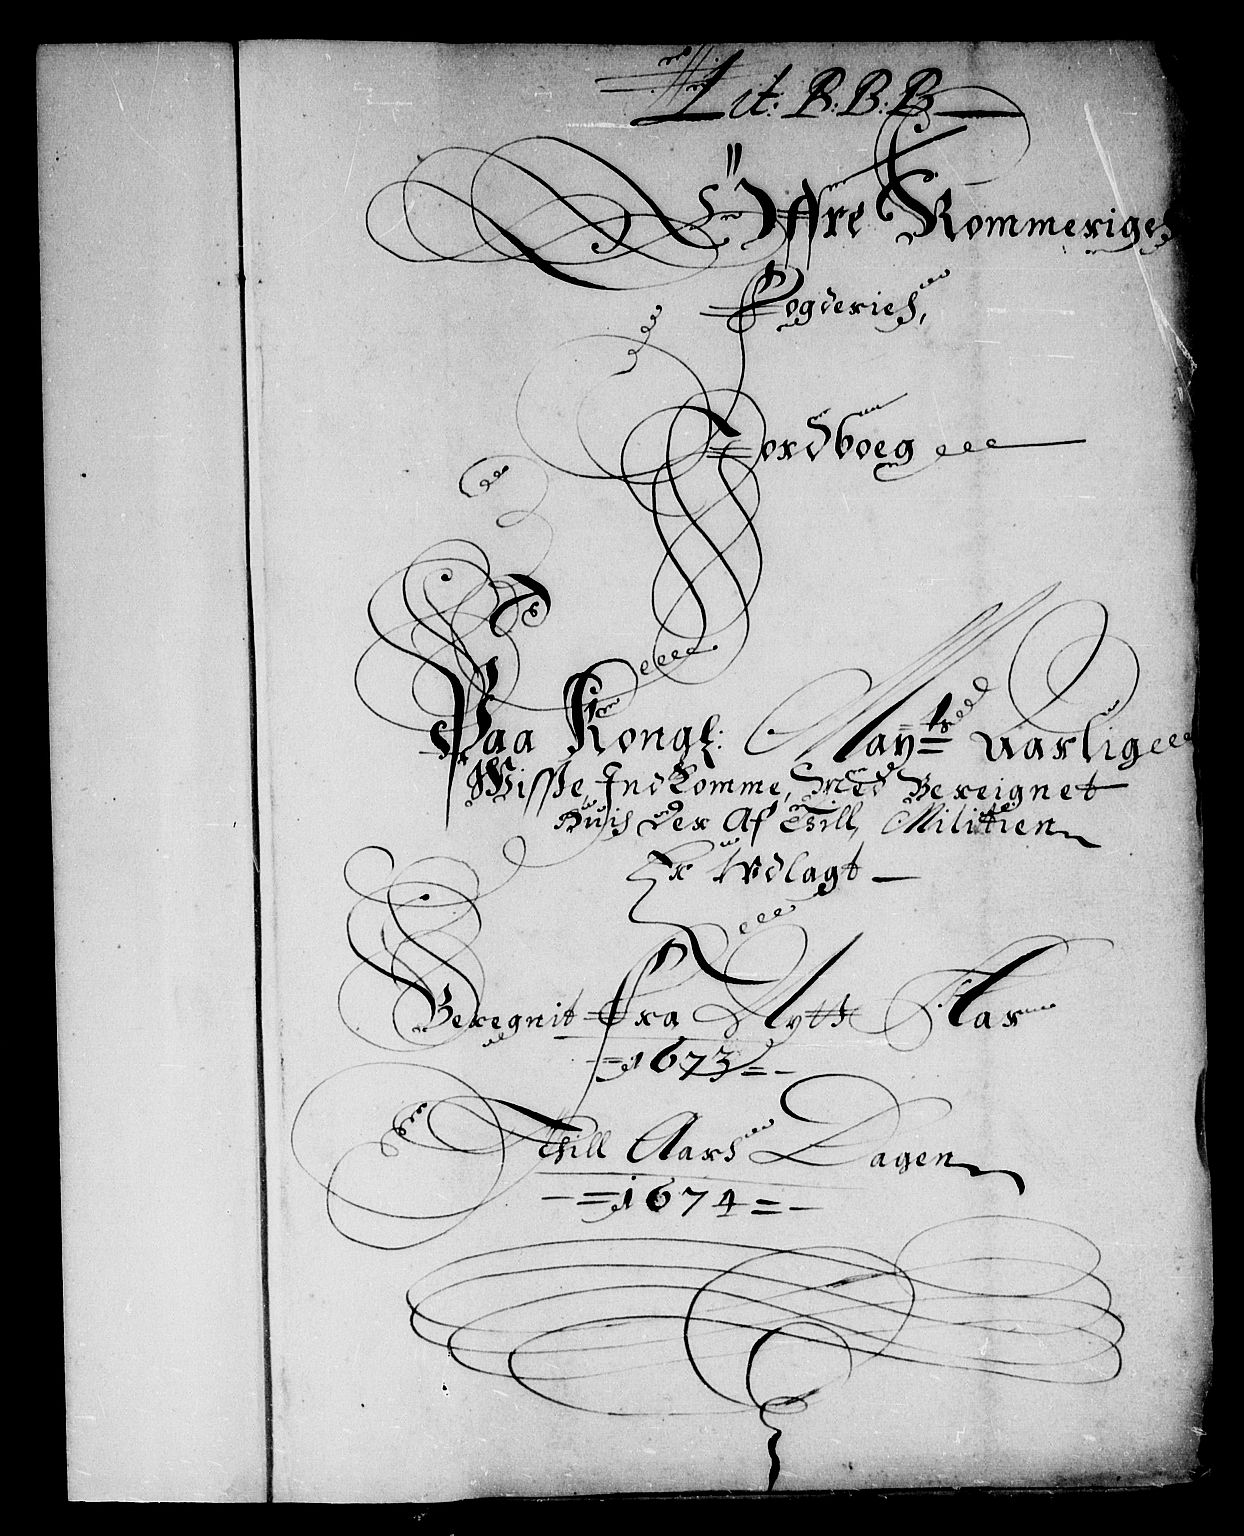 Lit: B: B: B
Öffre Rommeriges
Fogderies,
Jordboeg
Paa Kongl: Mayts Aarlige
Wisse Indkomme, Med Bereignet
Huis der Af Till Militien
Er Udlagt
Beregnit Fra Nytt Aar
1673
Till Aars Dagen
1674